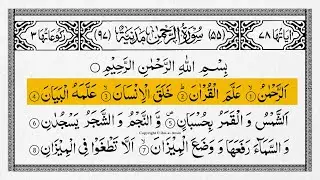 اٰیَاتُهَا ٧٨ (٥٥) سُوْرَةُ الرَّحْمٰنِ مَدَنِیَّةٌ (٩٧) رُكُوْعَاتُهَا ٣
بِسْمِ اللّٰهِ الرَّحْمٰنِ الرَّحِیْمِ
اَلرَّحْمٰنُ ① عَلَّمَ الْقُرْاٰنَ ② خَلَقَ الْاِنْسَانَ ③ عَلَّمَهُ الْبَیَانَ ④
اَلشَّمْسُ وَ الْقَمَرُ بِحُسْبَانٍ ⑤ وَّ النَّجْمُ وَ الشَّجَرُ یَسْجُدٰنِ ⑥
وَ السَّمَآءَ رَفَعَهَا وَ وَضَعَ الْمِیْزَانَ ⑦ اَلَّا تَطْغَوْا فِی الْمِیْزَانِ ⑧